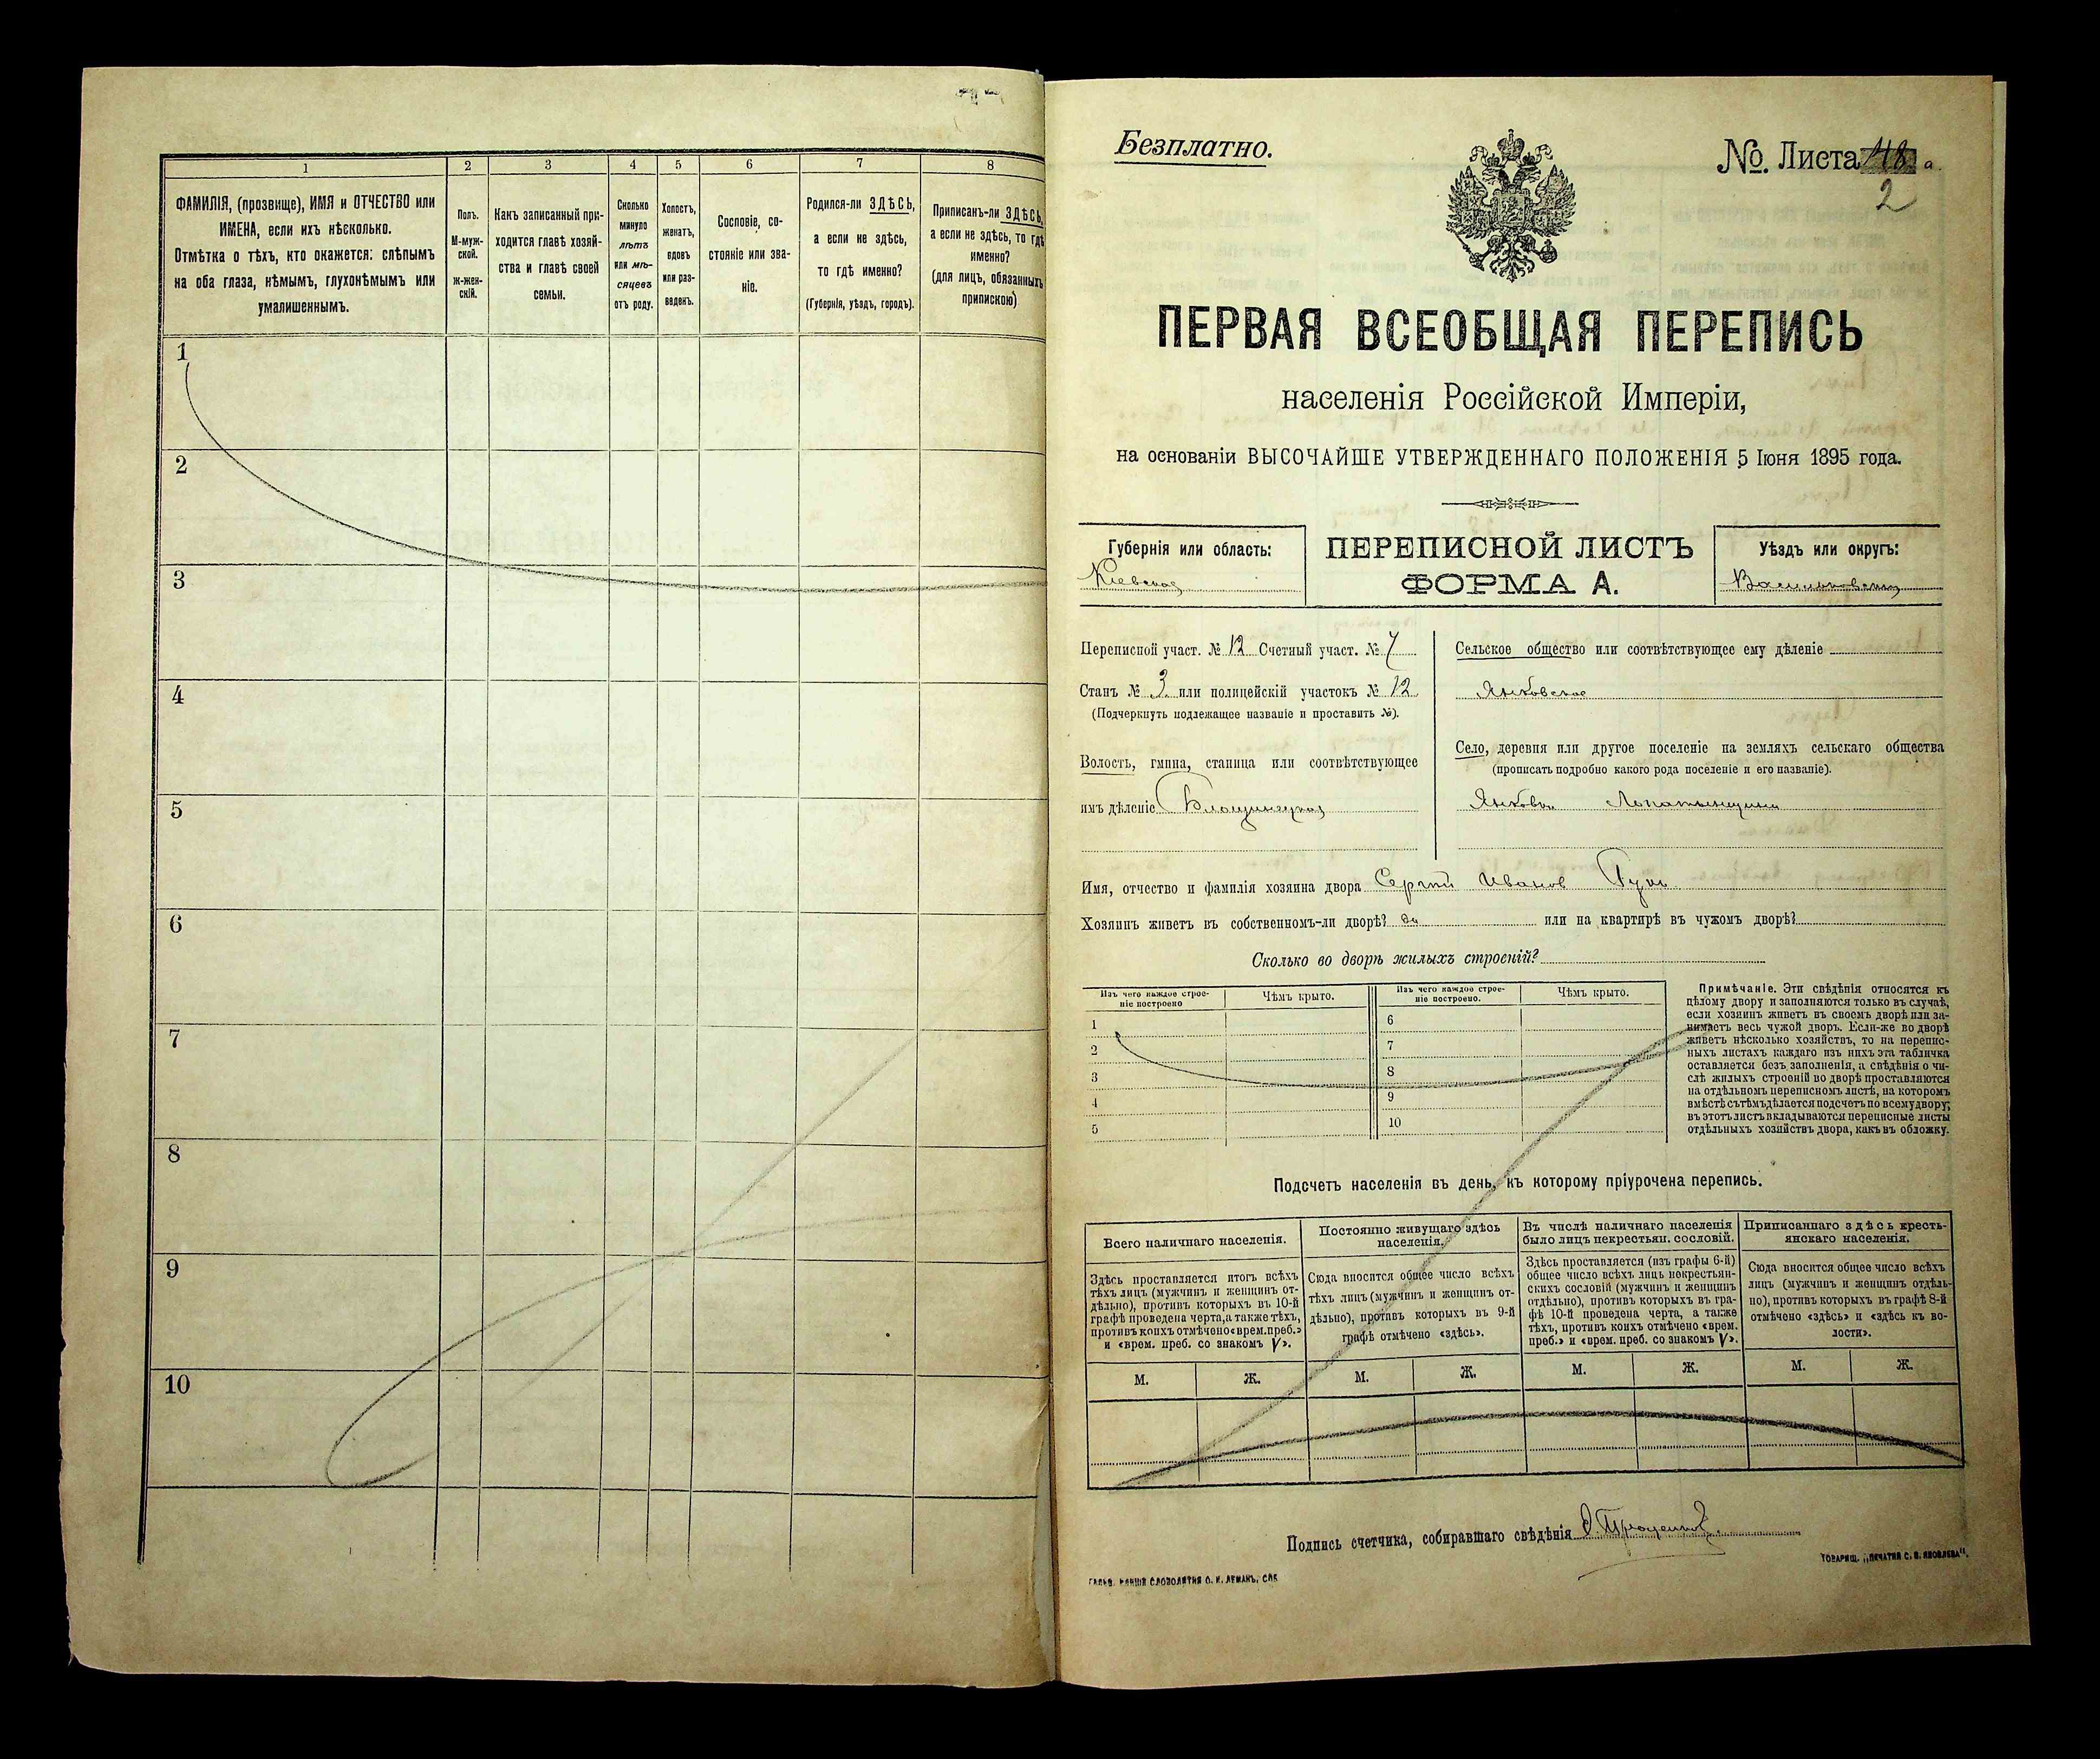 1
2
3
4
5
6
7
8
ФАМИЛІЯ, (прозвище), ИМЯ и ОТЧЕСТВО или
ИМЕНА, если ихъ нѣсколько.
Отмѣтка о тѣхъ, кто окажется: слѣпымъ
на оба глаза, нѣмымъ, глухонѣмымъ или
умалишеннымъ.
Полъ.
М-муж-
ской.
ж-жен-
скій.
Какъ записанный при-
ходится главѣ хозяй-
ства и главѣ своей
семьи.
Сколько
минуло
лѣтъ
или мѣ-
сяцевъ
отъ роду.
Холостъ,
женатъ,
вдовъ
или раз-
веденъ.
Сословіе, со-
стояніе или зва-
ніе.
Родился-ли ЗДѢСЬ,
а если не здѣсь,
то гдѣ именно?
(Губернія, уѣздъ, городъ).
Приписанъ-ли ЗДѢСЬ,
а если не здѣсь, то гдѣ
именно?
(для лицъ, обязанныхъ
припискою)
1
2
3
4
5
6
7
8
9
10
Безплатно.
№. Листа 48 а.
2
ПЕРВАЯ ВСЕОБЩАЯ ПЕРЕПИСЬ
населенія Россійской Имперіи,
на основаніи ВЫСОЧАЙШЕ УТВЕРЖДЕННАГО ПОЛОЖЕНІЯ 5 Іюня 1895 года.
Губернія или область:
Кіевская
ПЕРЕПИСНОЙ ЛИСТЪ
ФОРМА А.
Уѣздъ или округъ:
Васильковскій
Переписной участ. № 12 Счетный участ. № 7
Станъ № 3 или полицейскій участокъ № 12
(Подчеркнуть подлежащее названіе и проставить №).
Волость, гмина, станица или соотвѣтствующее
имъ дѣленіе Блощинецкая
Сельское общество или соотвѣтствующее ему дѣленіе
Янковское
Село, деревня или другое поселеніе на земляхъ сельскаго общества
(прописать подробно какого рода поселеніе и его названіе).
Янковка Лопатынщина
Имя, отчество и фамилія хозяина двора Сергій Иванов
Хозяинъ живетъ въ собственномъ-ли дворѣ? да или на квартирѣ въ чужомъ дворѣ?
Сколько во дворѣ жилыхъ строеній?
Изъ чего каждое строе-
ніе построено
Чѣмъ крыто.
Изъ чего каждое строе-
ніе построено.
Чѣмъ крыто.
1
2
3
4
5
6
7
8
9
10
Примѣчаніе. Эти свѣдѣнія относятся къ
цѣлому двору и заполняются только въ случаѣ,
если хозяинъ живетъ въ своемъ дворѣ или за-
нимаетъ весь чужой дворъ. Если-же во дворѣ
живетъ нѣсколько хозяйствъ, то на перепис-
ныхъ листахъ каждаго изъ нихъ эта табличка
оставляется безъ заполненія, а свѣдѣнія о чи-
слѣ жилыхъ строеній во дворѣ проставляются
на отдѣльномъ переписномъ листѣ, на которомъ
вмѣстѣ съ тѣмъ дѣлается подсчетъ по всему двору;
въ этотъ листъ вкладываются переписные листы
отдѣльныхъ хозяйствъ двора, какъ въ обложку.
Подсчетъ населенія въ день, къ которому пріурочена перепись.
Всего наличнаго населенія.
Здѣсь проставляется итогъ всѣхъ
тѣхъ лицъ (мужчинъ и женщинъ от-
дѣльно), противъ которыхъ въ 10-й
графѣ проведена черта, а также тѣхъ,
противъ коихъ отмѣчено «врем. преб.»
и «врем. преб. со знакомъ V».
Постоянно живущаго здѣсь
населенія.
Сюда вносится общее число всѣхъ
тѣхъ лицъ (мужчинъ и женщинъ от-
дѣльно), противъ которыхъ въ 9-й
графѣ отмѣчено «здѣсь».
Въ числѣ наличнаго населенія
было лицъ некрестьян. сословій.
Здѣсь проставляется (изъ графы 6-й)
общее число всѣхъ лицъ некрестьян-
скихъ сословій (мужчинъ и женщинъ
отдѣльно), противъ которыхъ въ гра-
фѣ 10-й проведена черта, а также
тѣхъ, противъ коихъ отмѣчено «врем.
преб.» и «врем. преб. со знакомъ V».
Приписаннаго здѣсь кресть-
янскаго населенія.
Сюда вносится общее число всѣхъ
лицъ (мужчинъ и женщинъ отдѣль-
но), противъ которыхъ въ графѣ 8-й
отмѣчено «здѣсь» и «здѣсь къ во-
лости».
М. Ж. М. Ж. М. Ж. М. Ж.
Подпись счетчика, собиравшаго свѣдѣнія
ТОВАРИЩ. „ПЕЧАТНЯ С. П. ЯКОВЛЕВА“.
СЛОВОЛИТНЯ О. И. ЛЕМАНЪ, СПБ